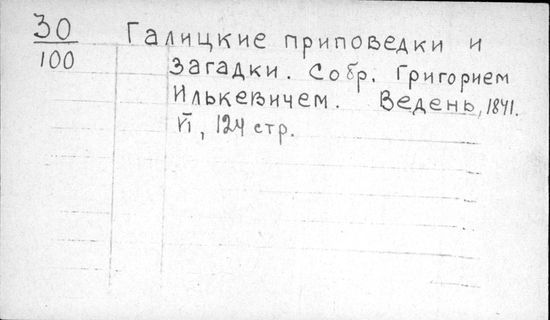 30
100
Галицкие приповедки и
загадки. Собр. Григорием
Илькевичем. Ведень, 1841.
VI, 124 стр.